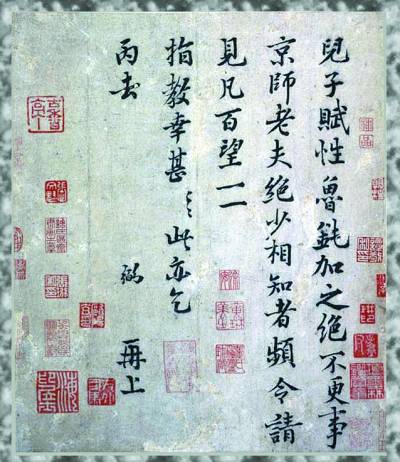 兒子賦性魯鈍加之絕不更事
京師老夫絕少相知者頻令請
見凡百望一一
指教幸甚〻〻此亦乞
丙去 弼 再上